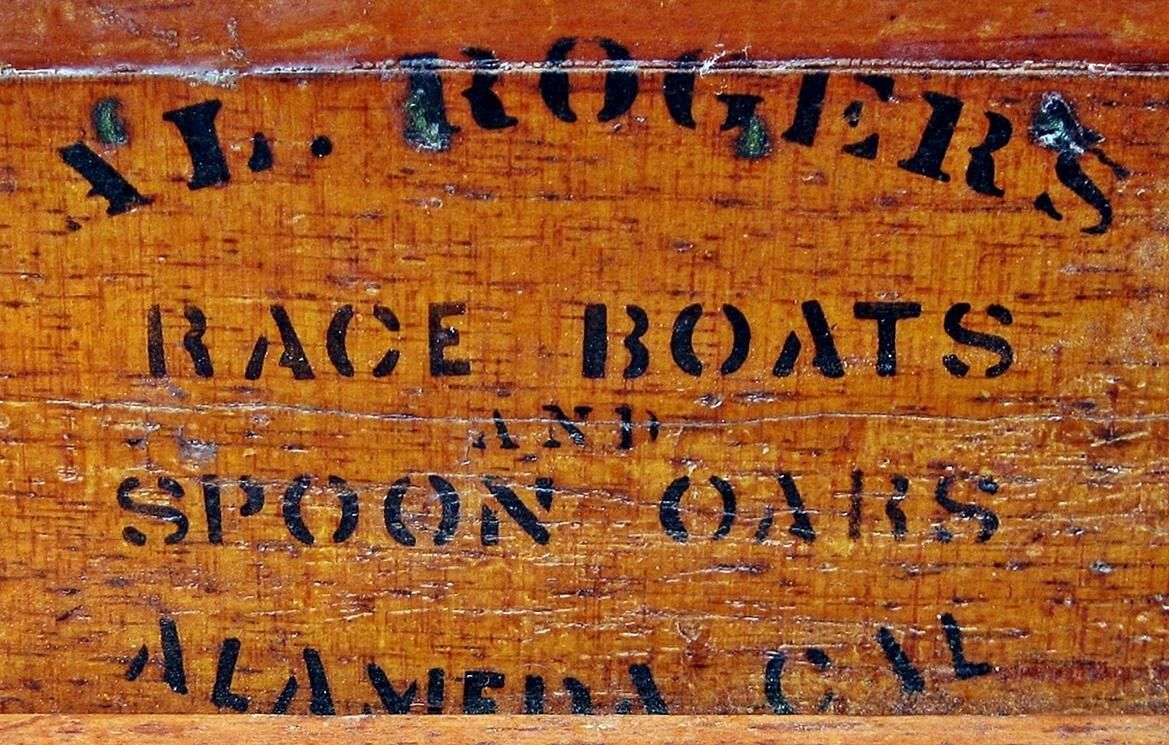 AL. ROGERS
RACE BOATS
AND
SPOON OARS
ALAMEDA CAL